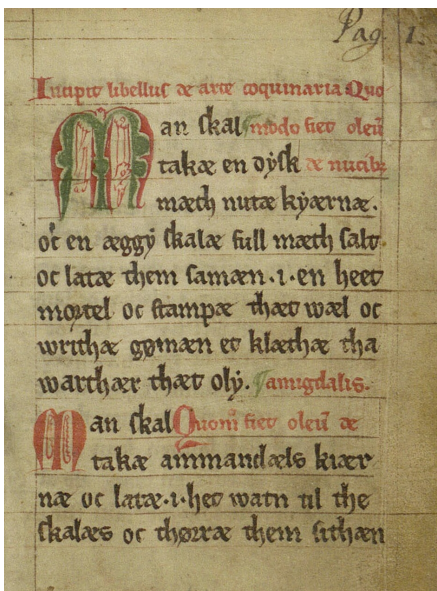 Pag. 1.
Incipit libellus de arte coquinaria Quo
Man skal modo fiet oleū
takæ en dysk de nucibꝫ
mæth nutæ kyærnæ.
oc en æggy skalæ full mæth salt
oc latæ them samæn .i. en heet
mortel oc stampæ thæt wæl oc
writhæ gømæn et klæthæ tha
warthær thæt oly. amigdalis.
Man skal Quomͦ fiet oleū de
takæ ammandæls kiær
næ oc latæ .i. het watn til the
skalæs oc thørræ them sithæn